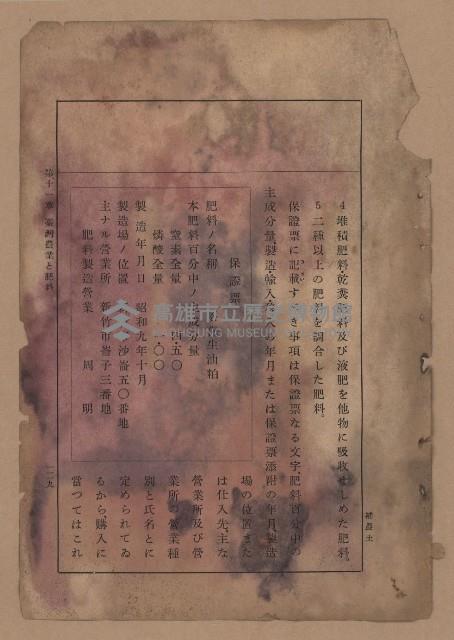 4 堆積肥料、乾糞肥料及び液肥を他物に吸收せしめた肥料。
5 二種以上の肥料を調合した肥料。
保證票に記載すべき事項は保證票なる文字、肥料百分中の
主成分量、製造、輸入の年月または保證票添附の年月、製造
場の位置また
は仕入先、主な
營業所及び營
業所の營業種
別と氏名とに
定められてゐ
るから、購入に
當つてはこれ
保證票
肥料ノ名稱 生油粕
本肥料百分中ノ成分量
窒素全量 四五〇
燐酸全量 〇〇
製造年月日 昭和九年十月
製造場ノ位置 沙崙五〇番地
主ナル營業所 新竹市崙子三番地
肥料製造營業 周 明
第十一章 臺灣農業と肥料
一二九
補農土
高雄市立歷史博物館
KAOHSIUNG MUSEUM OF HISTORY